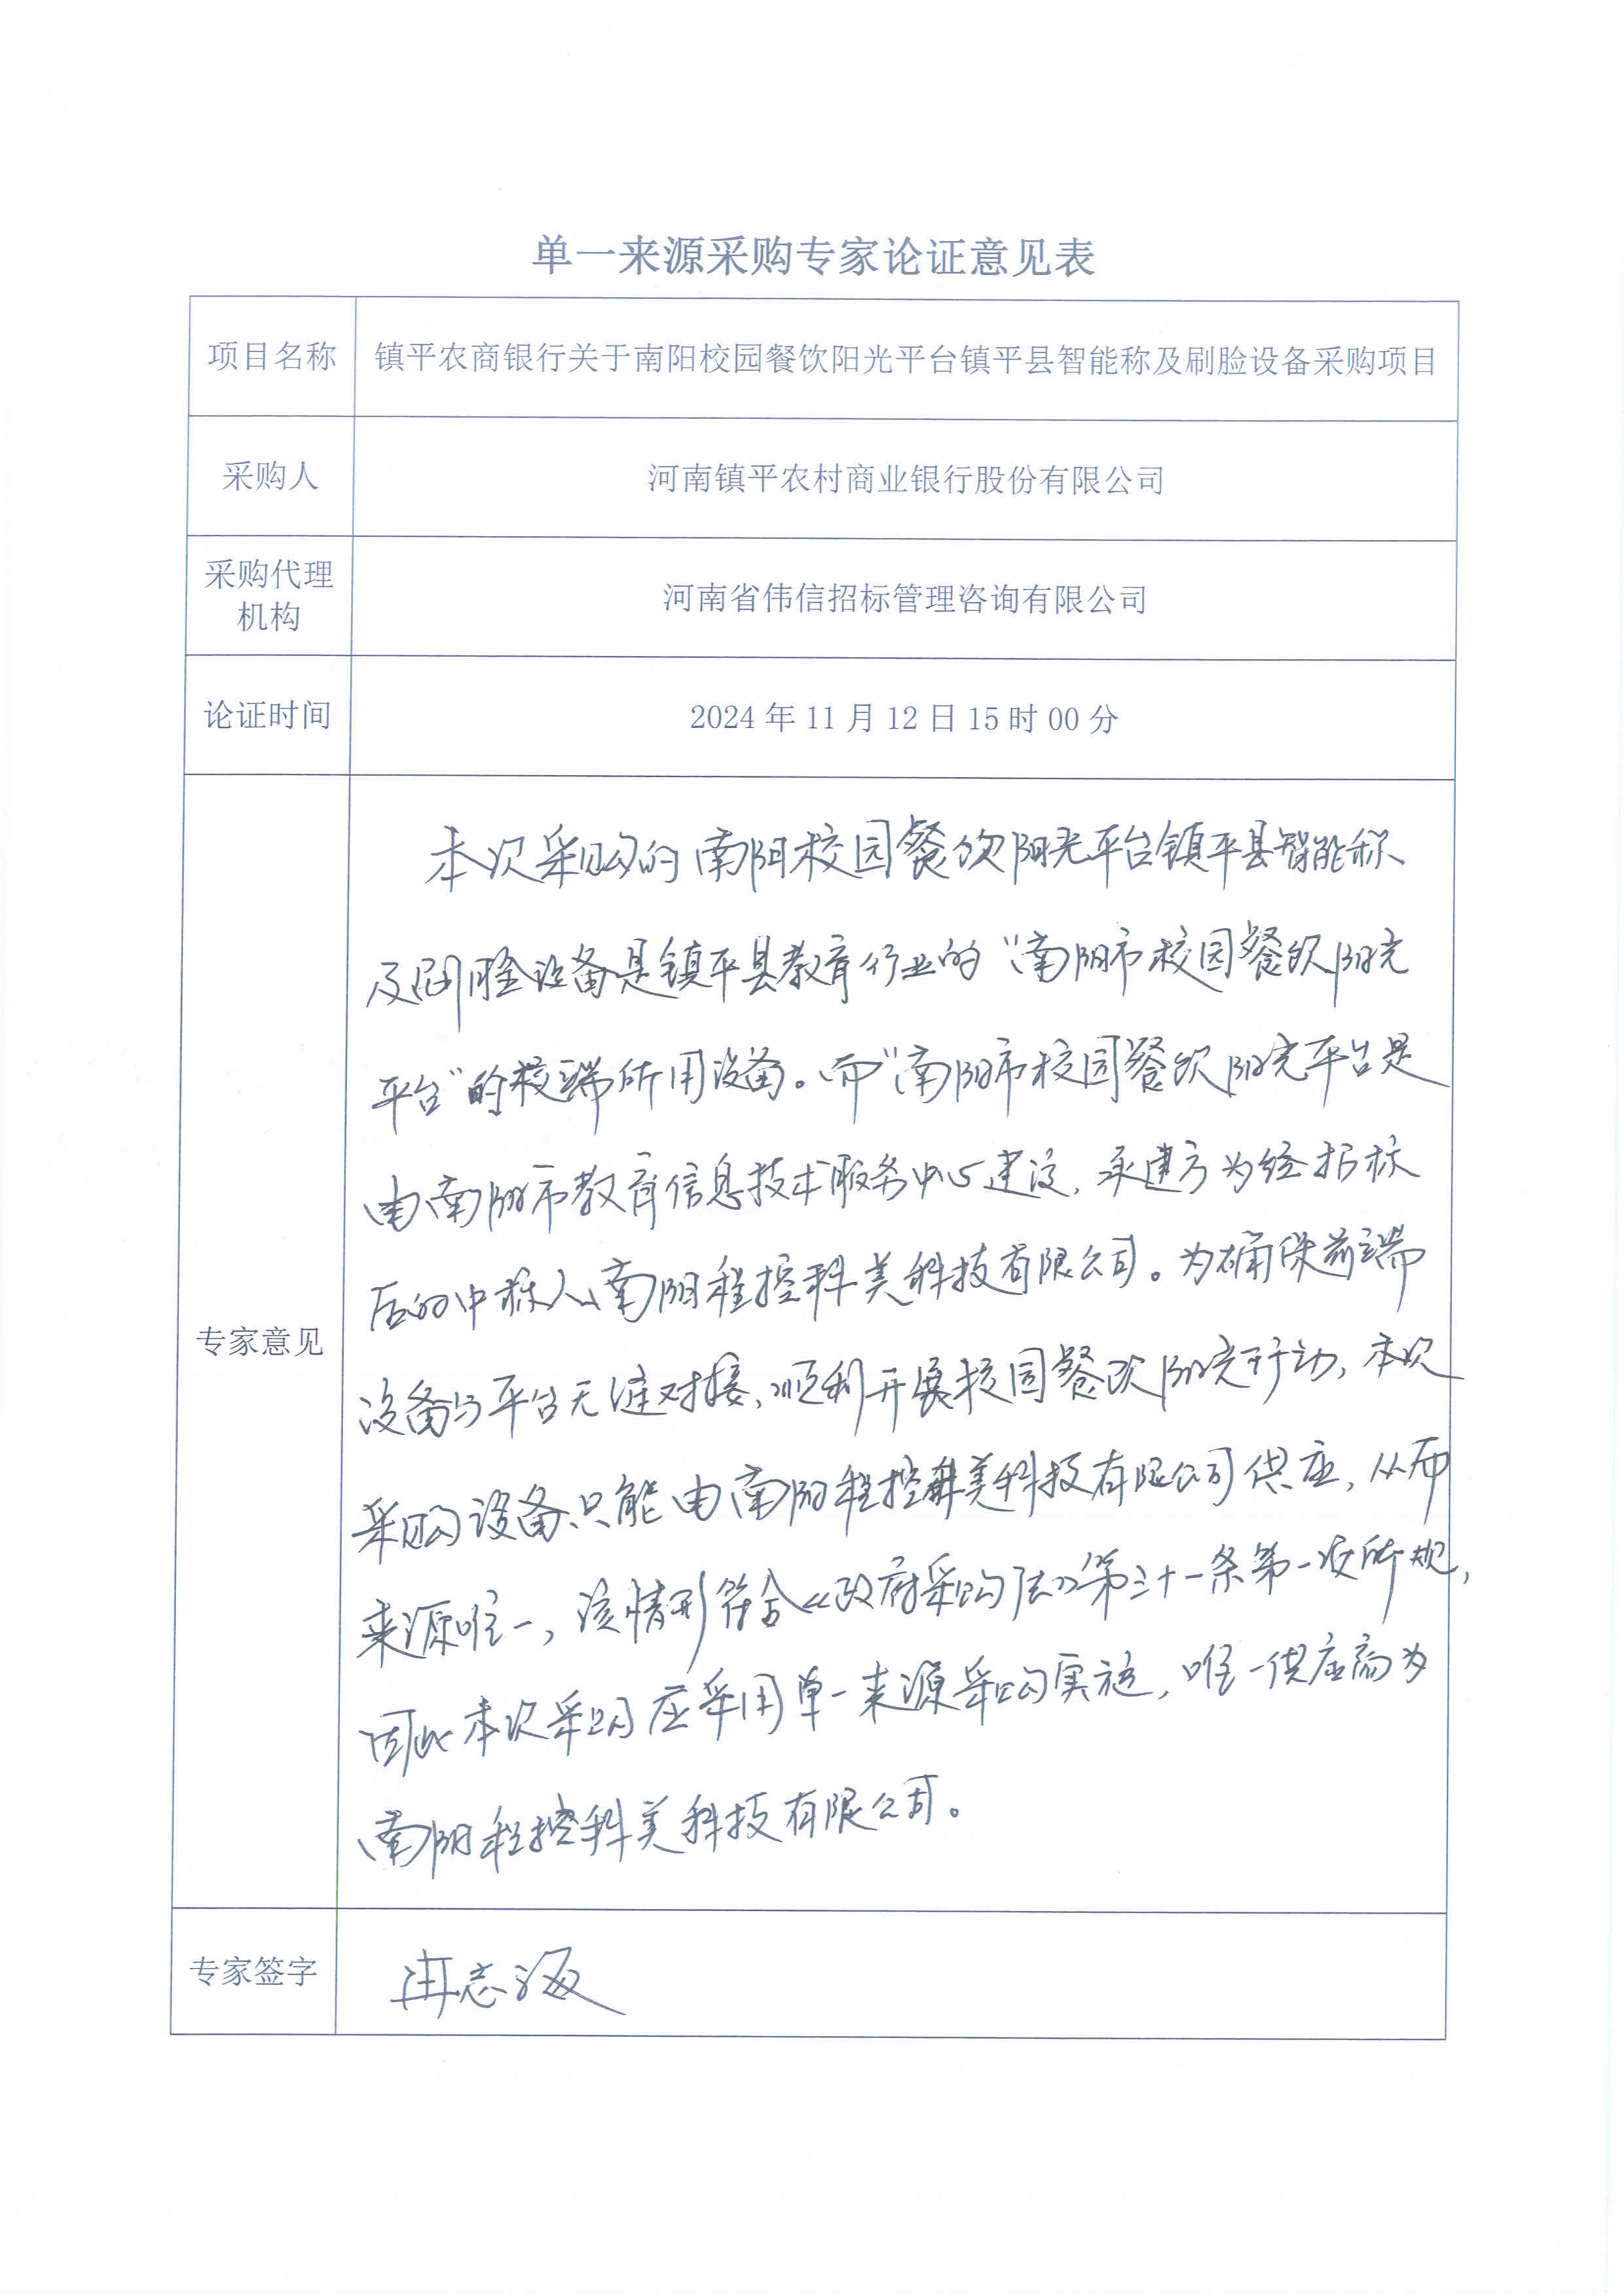 单一来源采购专家论证意见表
项目名称
镇平农商银行关于南阳校园餐饮阳光平台镇平县智能称及刷脸设备采购项目
采购人
河南镇平农村商业银行股份有限公司
采购代理
机构
河南省伟信招标管理咨询有限公司
论证时间
2024年11月12日15时00分
专家意见
本次采购的南阳校园餐饮阳光平台镇平县智能称
及刷脸设备是镇平县教育行业的“南阳市校园餐饮阳光
平台”的校端所用设备。而“南阳市校园餐饮阳光平台是
由南阳市教育信息技术服务中心建设,承建方为经招标
后的中标人南阳程控科美科技有限公司。为确保前端
设备与平台无缝对接,顺利开展校园餐饮阳光行动,本次
采购设备只能由南阳程控科美科技有限公司供应,从而
来源唯一,该情形符合《政府采购法》第三十一条第一次所规,
因此本次采购应采用单一来源采购实施,唯一供应商为
南阳程控科美科技有限公司。
专家签字
志海